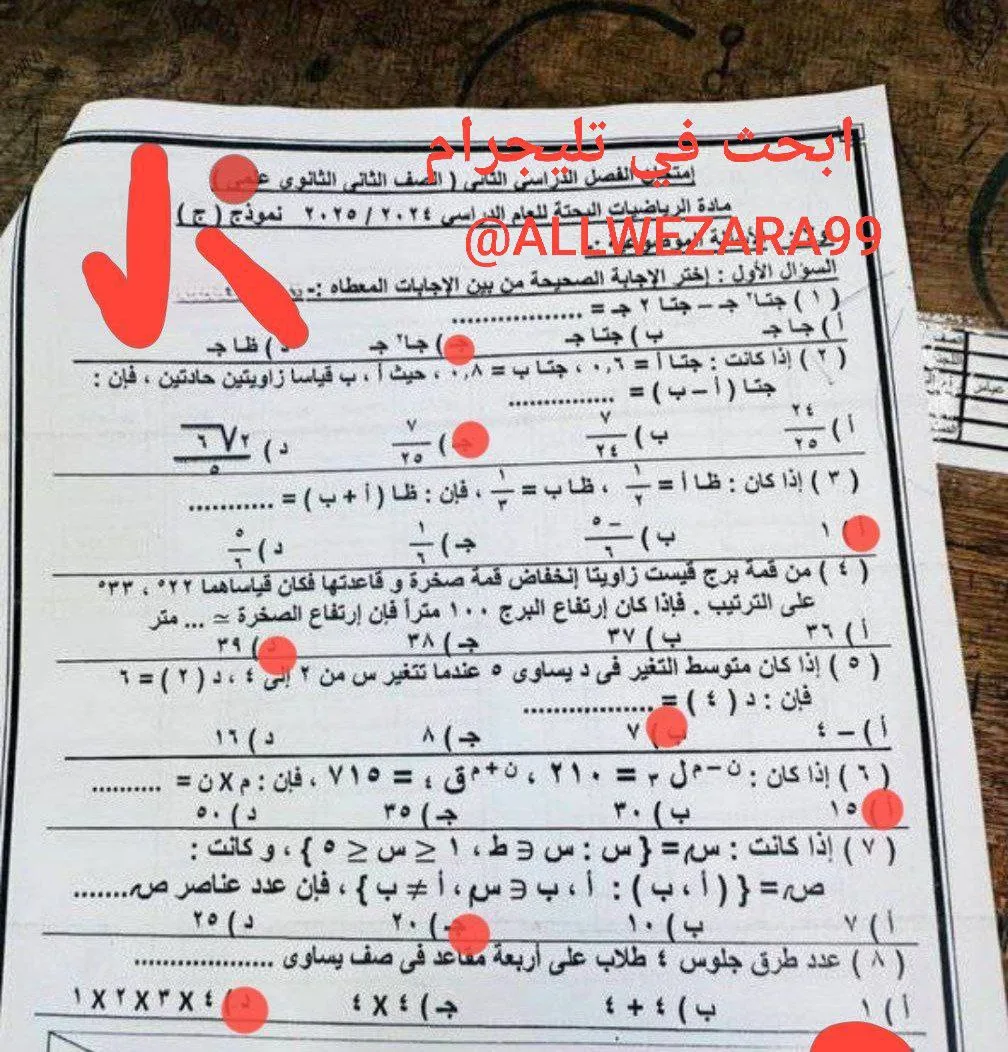 ابحث في تليجرام
إمتحان الفصل الدراسى الثانى ( الصف الثانى الثانوى علمى )
مادة الرياضيات البحتة للعام الدراسى ٢٠٢٤ / ٢٠٢٥ نموذج ( ج )
@ALLWEZARA99
الموضوعية :-
السؤال الأول : إختر الإجابة الصحيحة من بين الإجابات المعطاه :-
( ١ ) جتا٢ جـ – جتا ٢ جـ = ..................
أ ) جا جـ ب ) جتا جـ جـ ) جا٢ جـ د ) ظا جـ
( ٢ ) إذا كانت : جتا أ = ٠,٦ ، جتا ب = ٠,٨ ، حيث أ ، ب قياسا زاويتين حادتين ، فإن :
جتا ( أ – ب ) = ...............
أ ) ٢٤/٢٥ ب ) ٧/٢٤ جـ ) ٧/٢٥ د ) ٢√٦/٥
( ٣ ) إذا كان : ظا أ = ١/٢ ، ظا ب = ١/٣ ، فإن : ظا ( أ + ب ) = ............
أ ) ١ ب ) –٥/٦ جـ ) ١/٦ د ) ٥/٦
( ٤ ) من قمة برج قيست زاويتا إنخفاض قمة صخرة و قاعدتها فكان قياساهما ٢٢° ، ٣٣°
على الترتيب . فإذا كان إرتفاع البرج ١٠٠ متراً فإن إرتفاع الصخرة ≃ ... متر
أ ) ٣٦ ب ) ٣٧ جـ ) ٣٨ د ) ٣٩
( ٥ ) إذا كان متوسط التغير فى د يساوى ٥ عندما تتغير س من ٢ إلى ٤ ، د ( ٢ ) = ٦
فإن : د ( ٤ ) = ..................
أ ) – ٤ ب ) ٧ جـ ) ٨ د ) ١٦
( ٦ ) إذا كان : ن–م ل ٣ = ٢١٠ ، ن+م ق ٤ = ٧١٥ ، فإن : م X ن = ..........
أ ) ١٥ ب ) ٣٠ جـ ) ٣٥ د ) ٥٠
( ٧ ) إذا كانت : س = { س : س ∈ ط ، ١ ≤ س ≤ ٥ } ، و كانت :
ص = { ( أ ، ب ) : أ ، ب ∈ س ، أ ≠ ب } ، فإن عدد عناصر ص........
أ ) ٧ ب ) ١٠ جـ ) ٢٠ د ) ٢٥
( ٨ ) عدد طرق جلوس ٤ طلاب على أربعة مقاعد فى صف يساوى ..................
أ ) ١ ب ) ٤ + ٤ جـ ) ٤ X ٤ د ) ٤ X ٣ X ٢ X ١